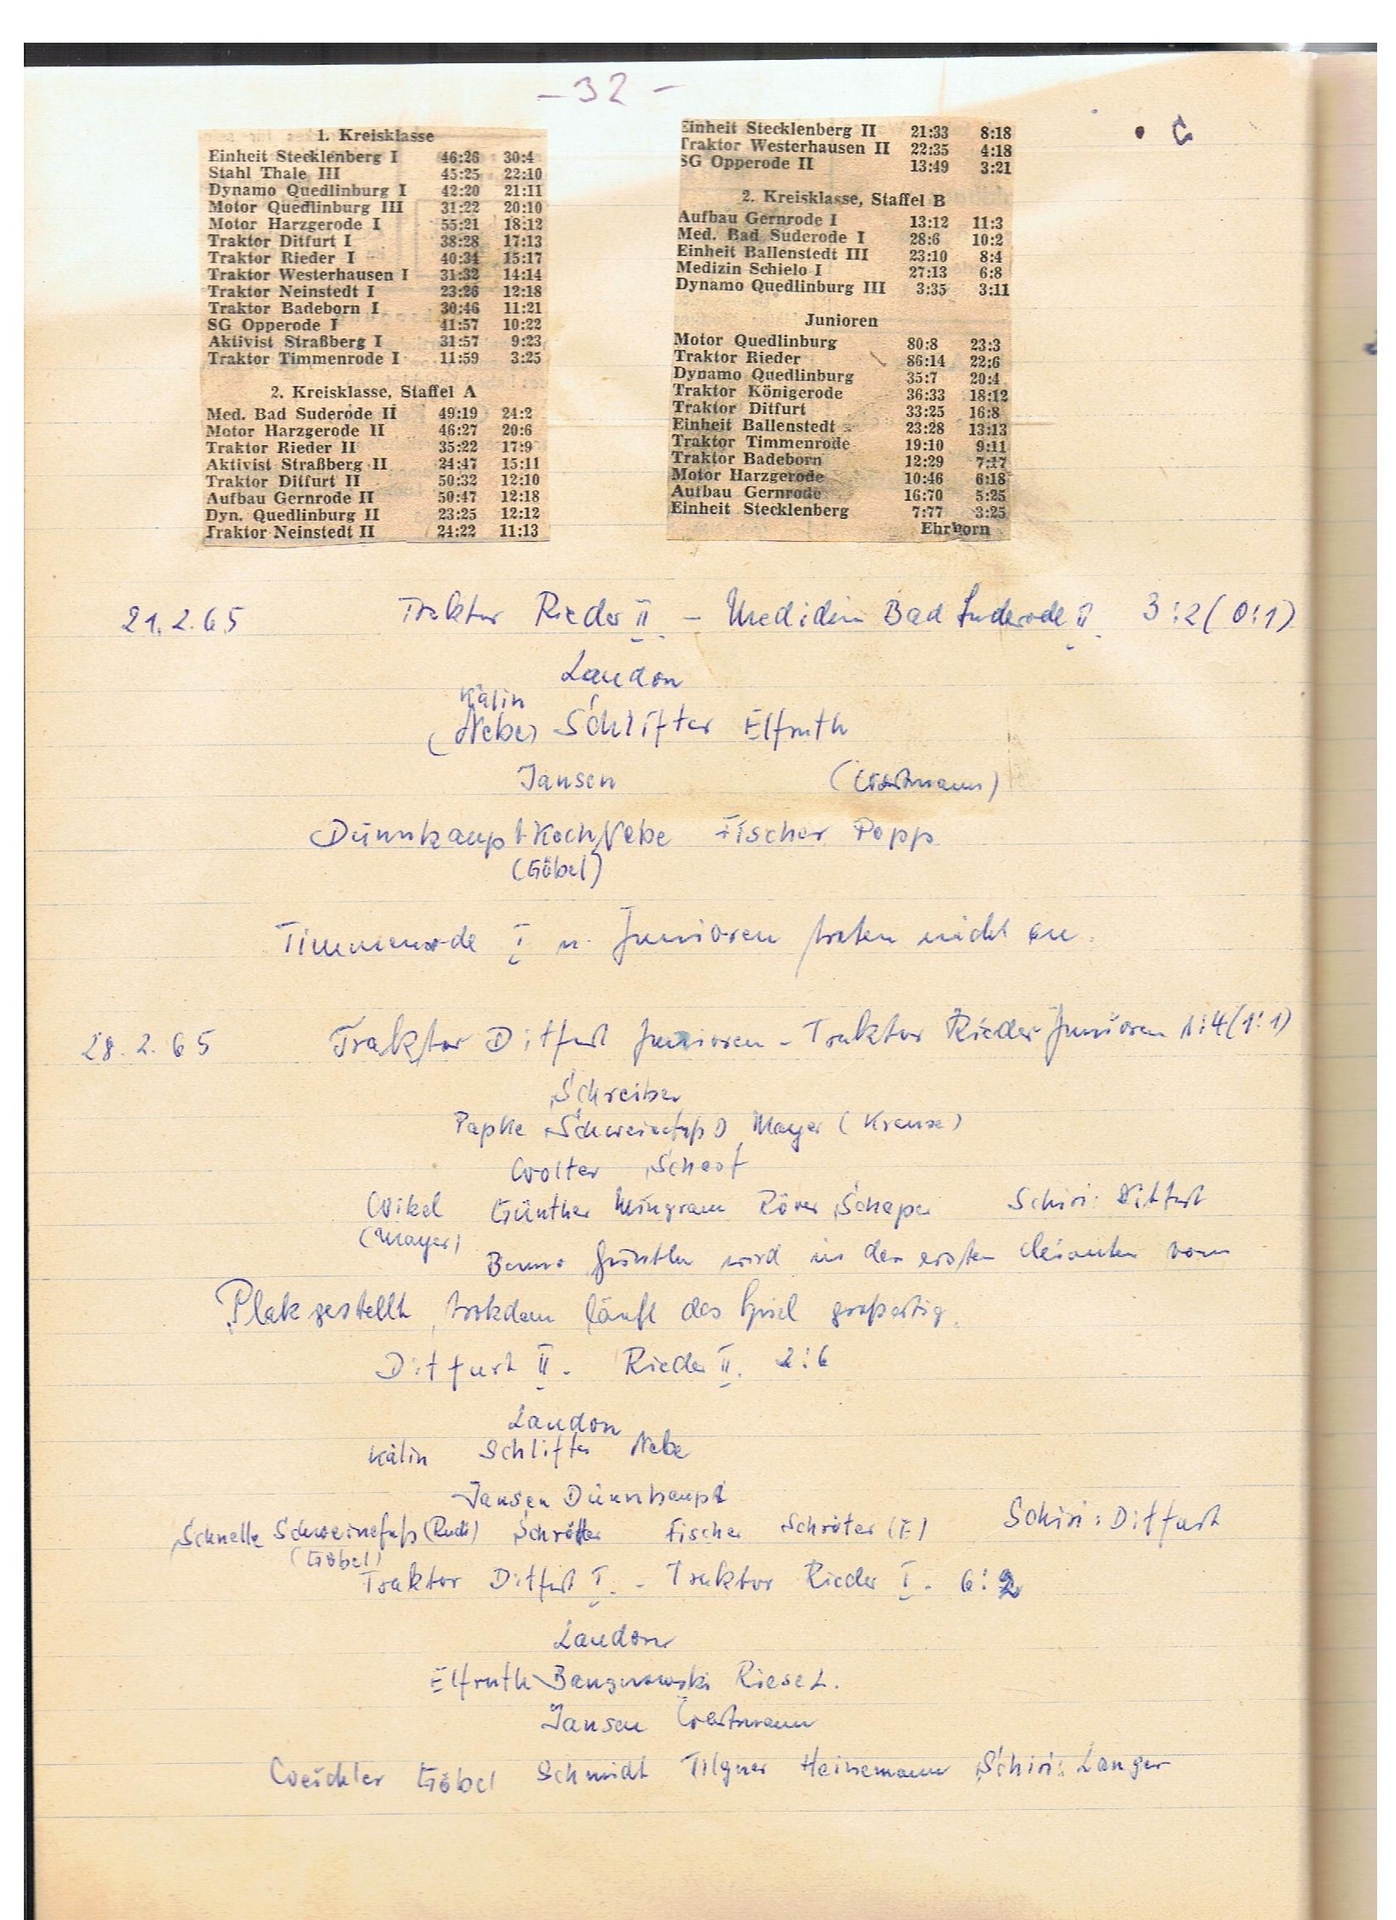 - 32 -
1. Kreisklasse
Einheit Stecklenberg I 46:26 30:4
Stahl Thale III 45:25 22:10
Dynamo Quedlinburg I 42:20 21:11
Motor Quedlinburg III 31:22 20:10
Motor Harzgerode I 55:21 18:12
Traktor Ditfurt I 38:28 17:13
Traktor Rieder I 40:34 15:17
Traktor Westerhausen I 31:32 14:14
Traktor Neinstedt I 23:26 12:18
Traktor Badeborn I 30:46 11:21
SG Opperode I 41:57 10:22
Aktivist Straßberg I 31:57 9:23
Traktor Timmenrode I 11:59 3:25
2. Kreisklasse, Staffel A
Med. Bad Suderode II 49:19 24:2
Motor Harzgerode II 46:27 20:6
Traktor Rieder II 35:22 17:9
Aktivist Straßberg II 24:47 15:11
Traktor Ditfurt II 50:32 12:10
Aufbau Gernrode II 50:47 12:18
Dyn. Quedlinburg II 23:25 12:12
Traktor Neinstedt II 24:22 11:13
Einheit Stecklenberg II 21:33 8:18
Traktor Westerhausen II 22:35 4:18
SG Opperode II 13:49 3:21
2. Kreisklasse, Staffel B
Aufbau Gernrode I 13:12 11:3
Med. Bad Suderode I 28:6 10:2
Einheit Ballenstedt III 23:10 8:4
Medizin Schielo I 27:13 6:8
Dynamo Quedlinburg III 3:35 3:11
Junioren
Motor Quedlinburg 80:8 23:3
Traktor Rieder 86:14 22:6
Dynamo Quedlinburg 35:7 20:4
Traktor Königerode 36:33 18:12
Traktor Ditfurt 33:25 16:8
Einheit Ballenstedt 23:28 13:13
Traktor Timmenrode 19:10 9:11
Traktor Badeborn 12:29 7:17
Motor Harzgerode 10:46 6:18
Aufbau Gernrode 16:70 5:25
Einheit Stecklenberg 7:77 3:25
Ehrhorn
21.2.65 Traktor Rieder II - Medidin Bad Suderode II 3:2 (0:1)
Laudon
Kälin
(Nebe) Schlifter Elfruth
Jansen (Wostmann)
Dünnhaupt Koch Nebe Fischer Popp
(Göbel)
Timmenrode I u. Junioren traten nicht an.
28.2.65 Traktor Ditfurt Junioren - Traktor Rieder Junioren 1:4 (1:1)
Schreiber
Papke Schweinefuß D Mayer (Krause)
Wolter Schaof
Wikel Günther Mingram Röver Schaper Schiri: Ditfurt
(Mayer)
Benno Günther wird in der ersten Minuten vom
Platz gestellt, trotzdem läuft das Spiel großartig.
Ditfurt II. Rieder II. 2:6
Laudon
Kälin Schlifter Nebe
Jansen Dünnhaupt
Schnelle Schweinefuß (Rudi) Schröter Fischer Schröter (E) Schiri: Ditfurt
(Göbel)
Traktor Ditfurt I. - Traktor Rieder I. 6:2
Laudon
Elfruth Banguowski Riese L.
Jansen Wostmann
Weichler Göbel Schmidt Tilgner Heinemann Schiri: Langer